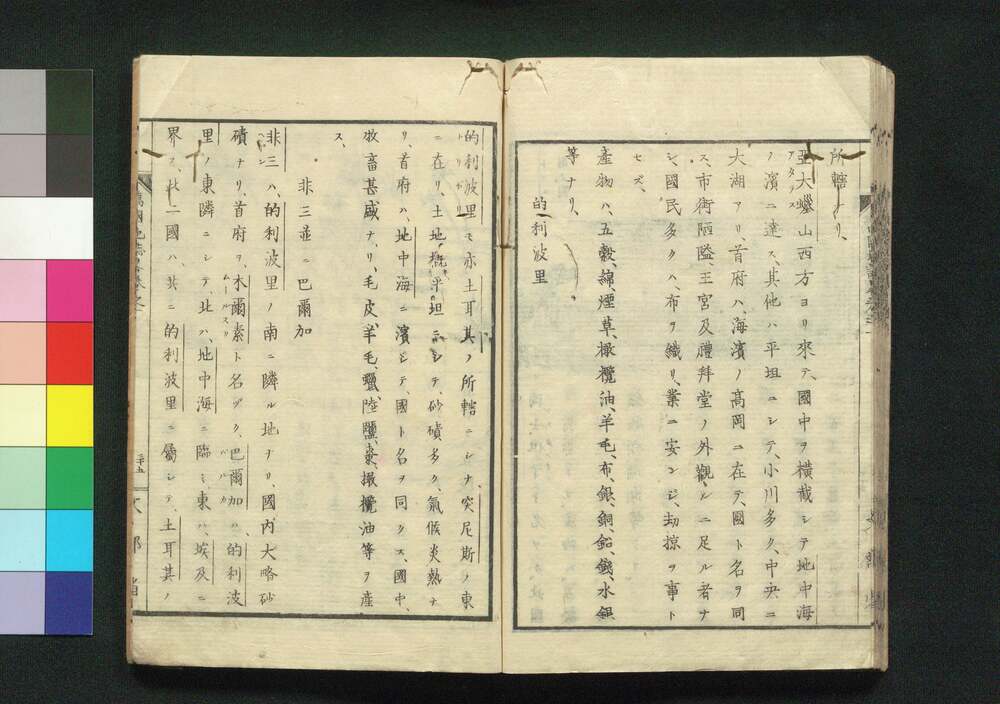 所轄ナリ、
亞大蠟山西方ヨリ來テ、國中ヲ橫截シテ地中海
アタラス
ノ濱ニ達ス、其他ハ平坦ニシテ、小川多ク、中央ニ
大湖アリ、首府ハ、海濱ノ高岡ニ在テ、國ト名ヲ同
ス、市街陋隘、王宮及禮拜堂ノ外觀ルニ足ル者ナ
シ、國民多クハ、布ヲ織リ、業ニ安ンジ、劫掠ヲ事ト
セズ、
產物ハ、五穀、綿、煙草、橄欖油、羊毛、布、銀、銅、鉛、錢、水銀
等ナリ、
的利波里
的利波里モ亦土耳其ノ所轄ニシテ、突尼斯ノ東
トリポリ
ニ在リ、土地概平坦ニシテ、砂磧多ク、氣候炎熱ナ
リ、首府ハ、地中海ニ濱シテ、國ト名ヲ同クス、國中、
牧畜甚盛ナリ、毛皮、羊毛、蠟、陸鹽、棗、橄欖油等ヲ產
ス、
非三並ニ巴爾加
非三ハ、的利波里ノ南ニ隣ル地ナリ、國內大略砂
磧ナリ、首府ヲ、木爾素ト名ヅク、巴爾加ハ、的利波
バルカ
里ノ東隣ニシテ、北ハ、地中海ニ臨ミ、東ハ、埃及ニ
界ス、此二國ハ、共ニ的利波里ニ屬シテ、土耳其ノ